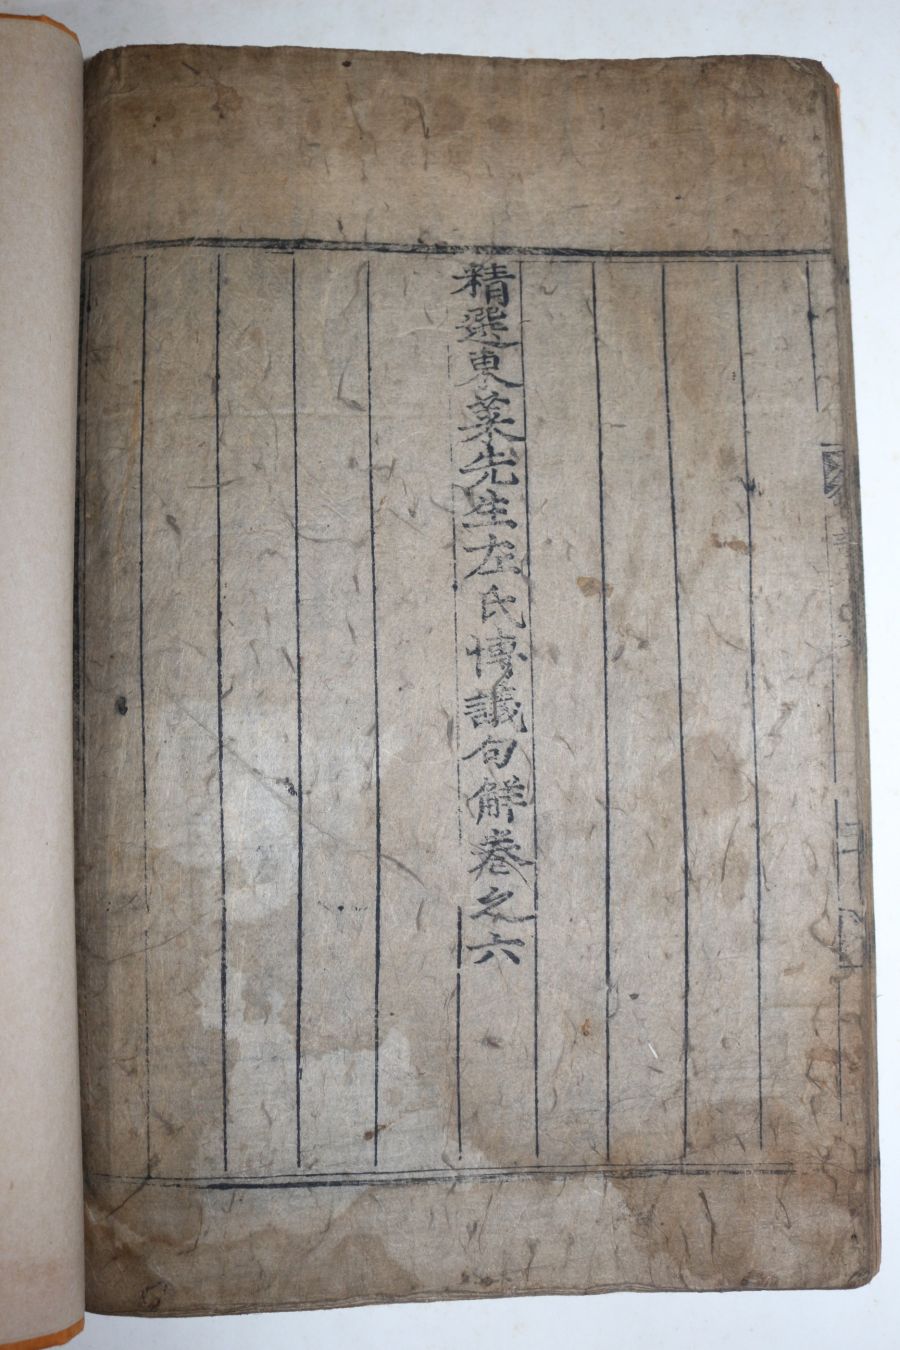 精選東萊先生左氏博議句解卷之六